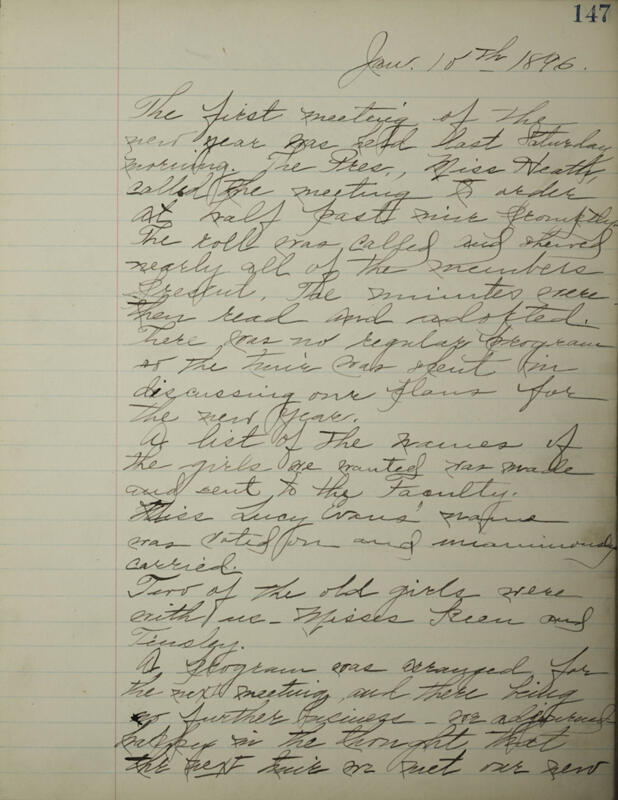 147
Jan. 10th 1896.
The first meeting of the
new year was held last Saturday
morning. The Pres., Miss Heath,
called the meeting to order
at half past nine promptly.
The roll was called and showed
nearly all of the members
present. The minutes were
then read and adopted.
There was no regular program
so the time was spent in
discussing our plans for
the new year.
A list of the names of
the girls we wanted was made
and sent to the Faculty.
Miss Lucy Evans' name
was voted on and unanimously
carried.
Two of the old girls were
with us - Misses Keen and
Tinsley.
A program was arranged for
the next meeting, and there being
no further business - we adjourned
happy in the thought that
the next time we met our new